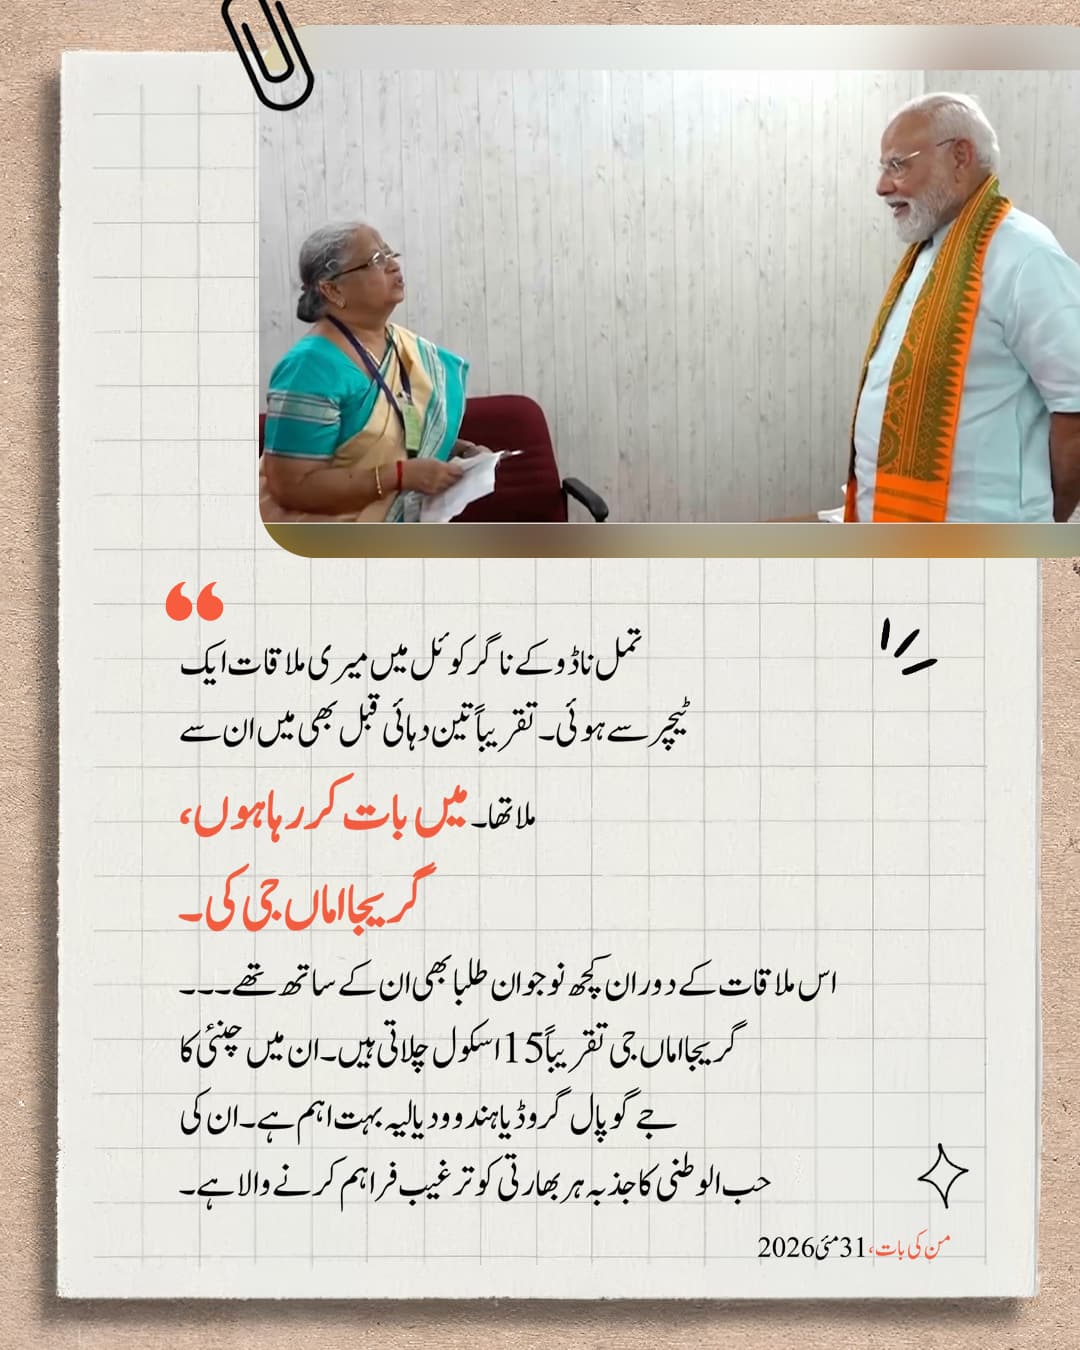 تمل ناڈو کے ناگرکوئل میں میری ملاقات ایک
ٹیچر سے ہوئی۔ تقریباً تین دہائی قبل بھی میں ان سے
ملا تھا۔ میں بات کر رہا ہوں،
گریجا اماں جی کی۔
اس ملاقات کے دوران کچھ نوجوان طلبا بھی ان کے ساتھ تھے۔۔۔
گریجا اماں جی تقریباً 15 اسکول چلاتی ہیں۔ ان میں چنئی کا
جے گوپال گروڈیا ہندو ودیالیہ بہت اہم ہے۔ ان کی
حب الوطنی کا جذبہ ہر بھارتی کو ترغیب فراہم کرنے والا ہے۔
من کی بات، 31 مئی 2026